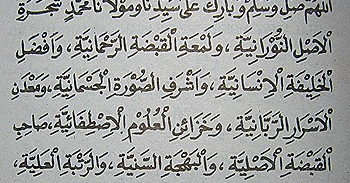 اَللّٰهُمَّ صَلِّ وَسَلِّمْ وَبَارِكْ عَلَى سَيِّدِنَا وَمَوْلَانَا مُحَمَّدٍ شَجَرَةِ
الْاَصْلِ النُّورَانِيَّةِ، وَلَمْعَةِ الْقَبْضَةِ الرَّحْمَانِيَّةِ، وَاَفْضَلِ
الْخَلِيقَةِ الْاِنْسَانِيَّةِ، وَاَشْرَفِ الصُّورَةِ الْجِسْمَانِيَّةِ، وَمَعْدَنِ
الْاَسْرَارِ الرَّبَّانِيَّةِ، وَخَزَائِنِ الْعُلُومِ الْاِصْطِفَائِيَّةِ، صَاحِبِ
الْقَبْضَةِ الْاَصْلِيَّةِ، وَالْبَهْجَةِ السَّنِيَّةِ، وَالرُّتْبَةِ الْعَلِيَّةِ،